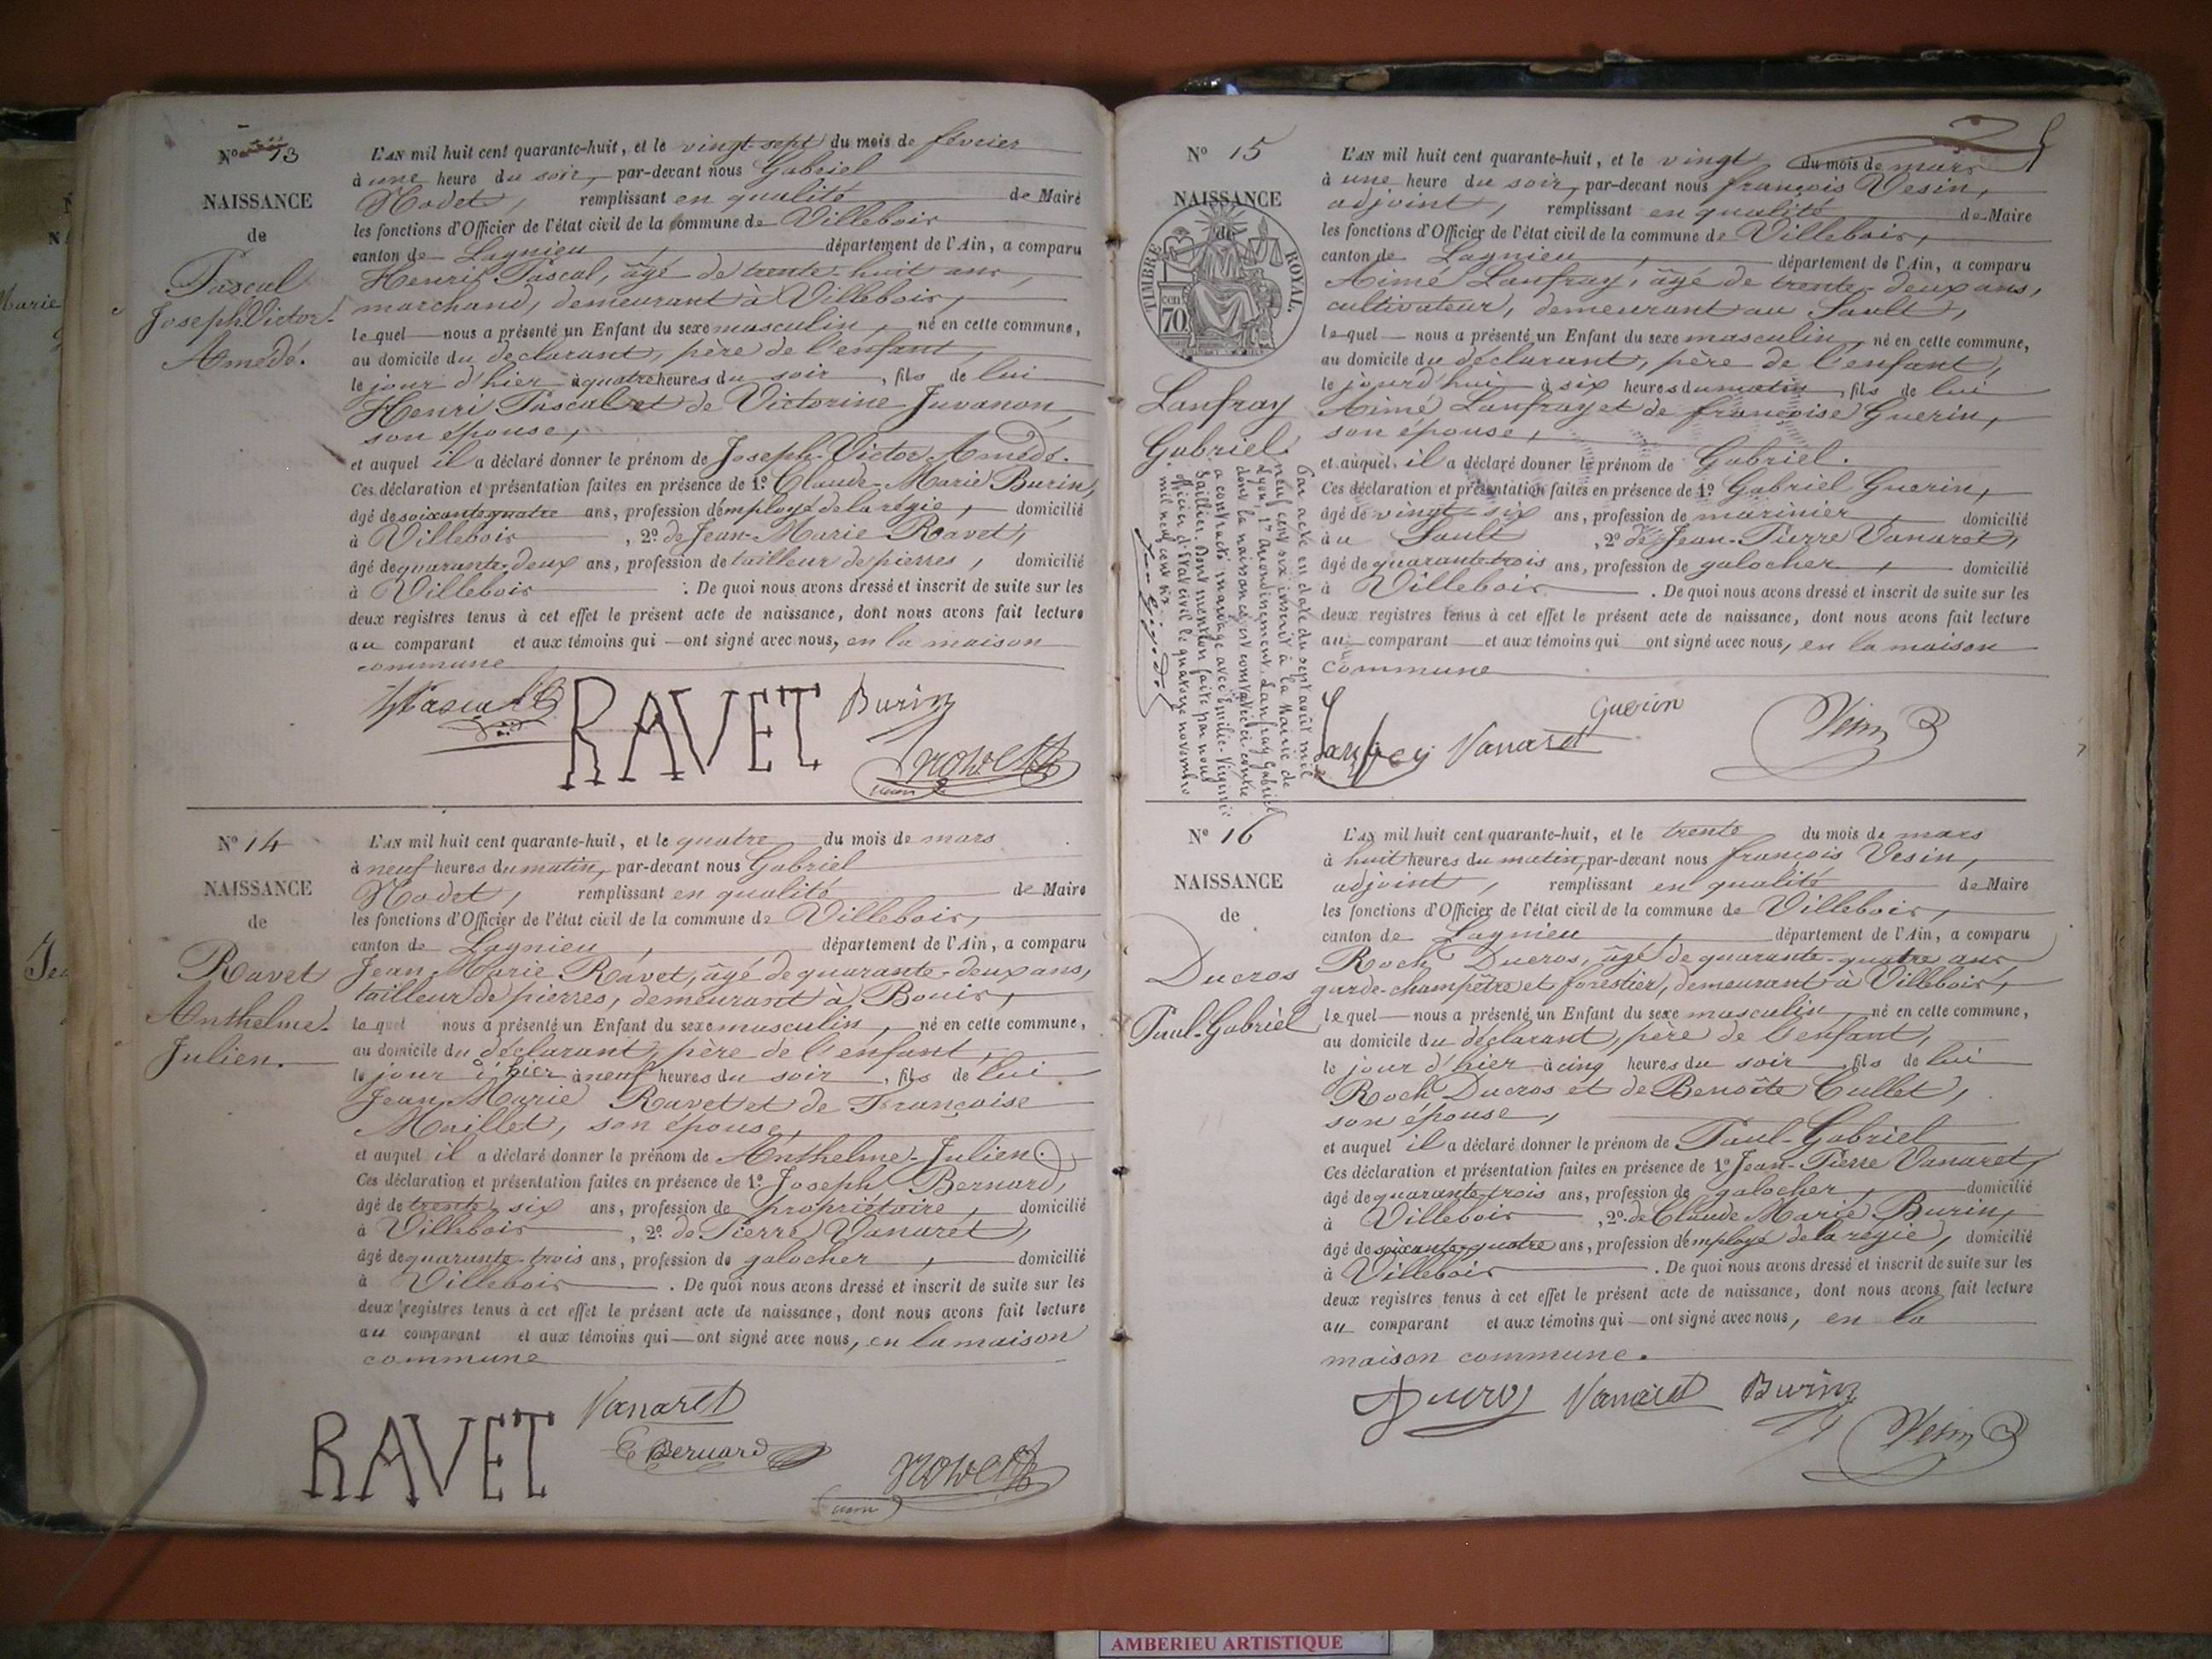 N° 13
NAISSANCE
de
Pascal
Joseph Victor-
Amédé.
L'AN mil huit cent quarante-huit, et le vingt-sept du mois de février
à une heure du soir, par-devant nous Gabriel
Nodet, remplissant en qualité de Maire
les fonctions d'Officier de l'état civil de la commune de Villebois
canton de Lagnieu, département de l'Ain, a comparu
Henri Pascal, âgé de trente-huit ans,
marchand, demeurant à Villebois,
lequel nous a présenté un Enfant du sexe masculin, né en cette commune,
au domicile du déclarant, père de l'enfant,
le jour d'hier à quatre heures du soir, fils de lui
Henri Pascal et de Victorine Juvanon,
son épouse,
et auquel il a déclaré donner le prénom de Joseph-Victor Amédé.
Ces déclaration et présentation faites en présence de 1° Claude-Marie Burin,
âgé de soixante quatre ans, profession d'employé de la régie, domicilié
à Villebois, 2° de Jean-Marie Ravet,
âgé de quarante-deux ans, profession de tailleur de pierres, domicilié
à Villebois. De quoi nous avons dressé et inscrit de suite sur les
deux registres tenus à cet effet le présent acte de naissance, dont nous avons fait lecture
au comparant et aux témoins qui ont signé avec nous, en la maison
commune
RAVET Burin
N° 14
NAISSANCE
de
Ravet
Anthelme-
Julien.
L'AN mil huit cent quarante-huit, et le quatre du mois de mars
à neuf heures du matin, par-devant nous Gabriel
Nodet, remplissant en qualité de Maire
les fonctions d'Officier de l'état civil de la commune de Villebois,
canton de Lagnieu, département de l'Ain, a comparu
Jean-Marie Ravet, âgé de quarante-deux ans,
tailleur de pierres, demeurant à Bouis,
lequel nous a présenté un Enfant du sexe masculin, né en cette commune,
au domicile du déclarant, père de l'enfant,
le jour d'hier à neuf heures du soir, fils de lui
Jean-Marie Ravet et de Françoise
Maillet, son épouse,
et auquel il a déclaré donner le prénom de Anthelme-Julien.
Ces déclaration et présentation faites en présence de 1° Joseph Bernard,
âgé de trente-six ans, profession de propriétaire, domicilié
à Villebois, 2° de Pierre Vanaret,
âgé de quarante-trois ans, profession de galocher, domicilié
à Villebois. De quoi nous avons dressé et inscrit de suite sur les
deux registres tenus à cet effet le présent acte de naissance, dont nous avons fait lecture
au comparant et aux témoins qui ont signé avec nous, en la maison
commune
RAVET Vanaret
Bernard
N° 15
NAISSANCE
de
TIMBRE ROYAL
70 cen
Lanfray
Gabriel.
Par acte en date du sept août mil
neuf cent six inscrit à la Mairie de
Lyon, 1er arrondissement, Lanfray Gabriel
dont la naissance est constatée ci-contre
a contracté mariage avec Emilie-Virginie
Saillier. Dont mention faite par nous
Officier d'Etat civil le quatorze novembre
mil neuf cent six.
L'AN mil huit cent quarante-huit, et le vingt du mois de mars
à une heure du soir, par-devant nous françois Vesin,
adjoint, remplissant en qualité de Maire
les fonctions d'Officier de l'état civil de la commune de Villebois,
canton de Lagnieu, département de l'Ain, a comparu
Aimé Lanfray, âgé de trente-deux ans,
cultivateur, demeurant au Sault,
lequel nous a présenté un Enfant du sexe masculin, né en cette commune,
au domicile du déclarant, père de l'enfant,
le jourd'hui à six heures du matin, fils de lui
Aimé Lanfray et de françoise Guerin,
son épouse,
et auquel il a déclaré donner le prénom de Gabriel.
Ces déclaration et présentation faites en présence de 1° Gabriel Guerin,
âgé de vingt-six ans, profession de marinier, domicilié
à au Sault, 2° de Jean-Pierre Vanaret,
âgé de quarante-trois ans, profession de galocher, domicilié
à Villebois. De quoi nous avons dressé et inscrit de suite sur les
deux registres tenus à cet effet le présent acte de naissance, dont nous avons fait lecture
au comparant et aux témoins qui ont signé avec nous, en la maison
commune
Guerin
Lanfrey Vanaret Vesin
N° 16
NAISSANCE
de
Ducros
Paul-Gabriel
L'AN mil huit cent quarante-huit, et le trente du mois de mars
à huit heures du matin, par-devant nous françois Vesin,
adjoint, remplissant en qualité de Maire
les fonctions d'Officier de l'état civil de la commune de Villebois,
canton de Lagnieu, département de l'Ain, a comparu
Roch Ducros, âgé de quarante-quatre ans
garde-champêtre et forestier, demeurant à Villebois,
lequel nous a présenté un Enfant du sexe masculin, né en cette commune,
au domicile du déclarant, père de l'enfant,
le jour d'hier à cinq heures du soir, fils de lui
Roch Ducros et de Benoîte Cullet,
son épouse,
et auquel il a déclaré donner le prénom de Paul-Gabriel
Ces déclaration et présentation faites en présence de 1° Jean-Pierre Vanaret,
âgé de quarante-trois ans, profession de galocher, domicilié
à Villebois, 2° de Claude Marie Burin,
âgé de soixante-quatre ans, profession d'employé de la régie, domicilié
à Villebois. De quoi nous avons dressé et inscrit de suite sur les
deux registres tenus à cet effet le présent acte de naissance, dont nous avons fait lecture
au comparant et aux témoins qui ont signé avec nous, en la
maison commune.
Ducros Vanaret Burin
Vesin
AMBERIEU ARTISTIQUE